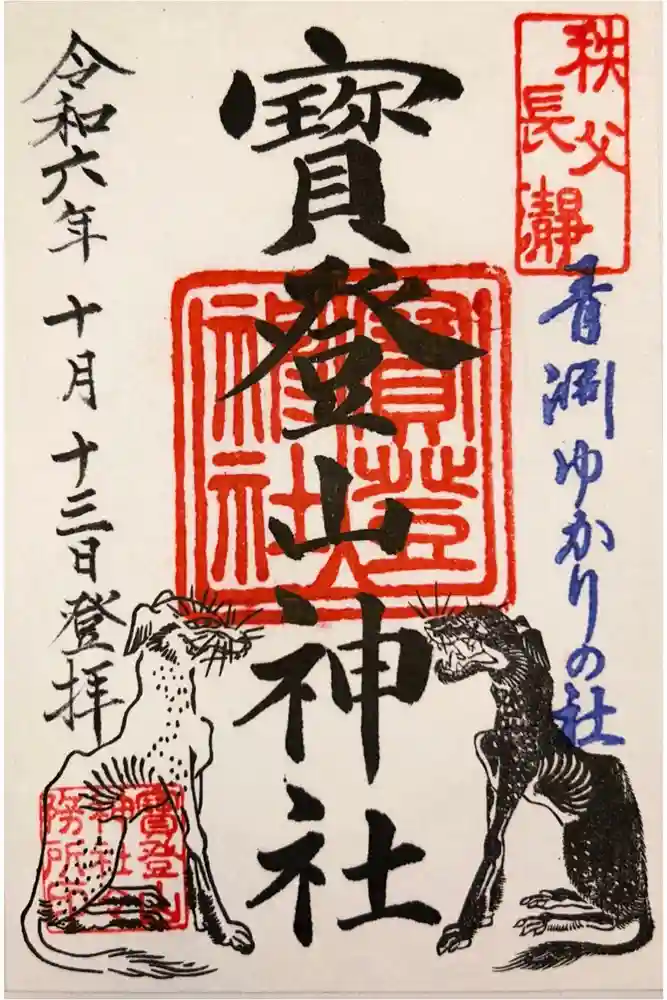 秩父
長瀞
青淵ゆかりの社
寳登山神社
寳登山
神社
令和六年 十月 十三日登拝
寳登山
神社
務所印